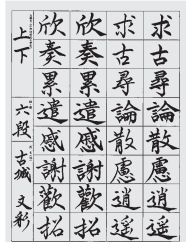 求古尋論散慮逍遥
求古尋論散慮逍遥
欣奏累遣慼謝歡招
欣奏累遣慼謝歡招
上下 六段 古城 文彩